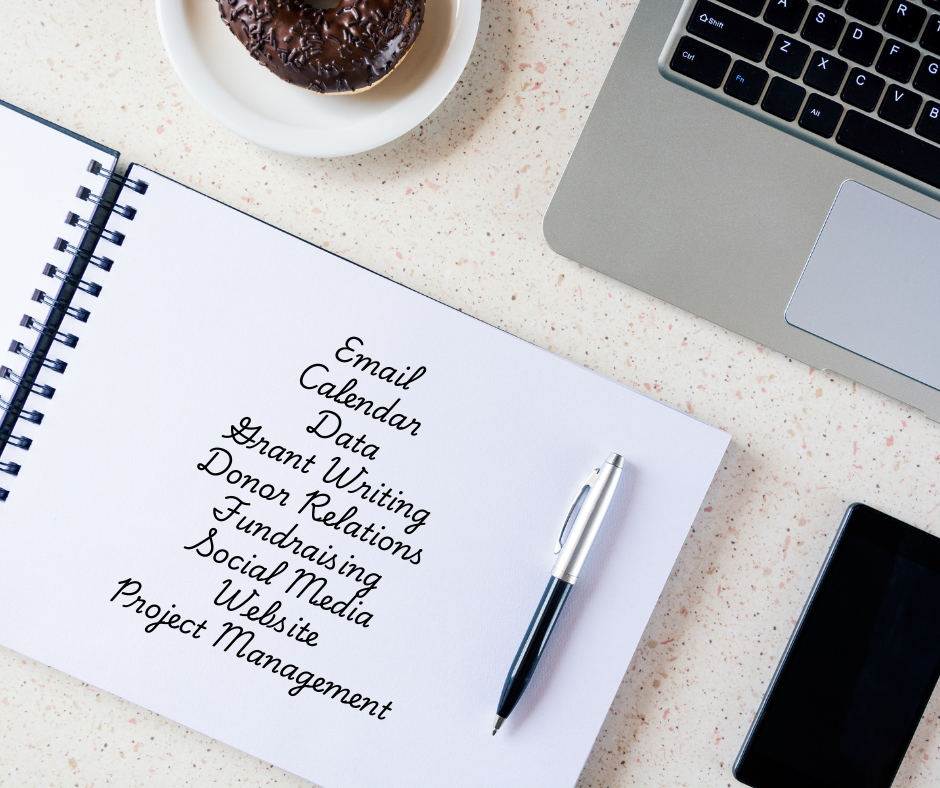 R
A S D F G
Shift Z X C V B
Ctrl Fn Alt
Email
Calendar
Data
Grant Writing
Donor Relations
Fundraising
Social Media
Website
Project Management